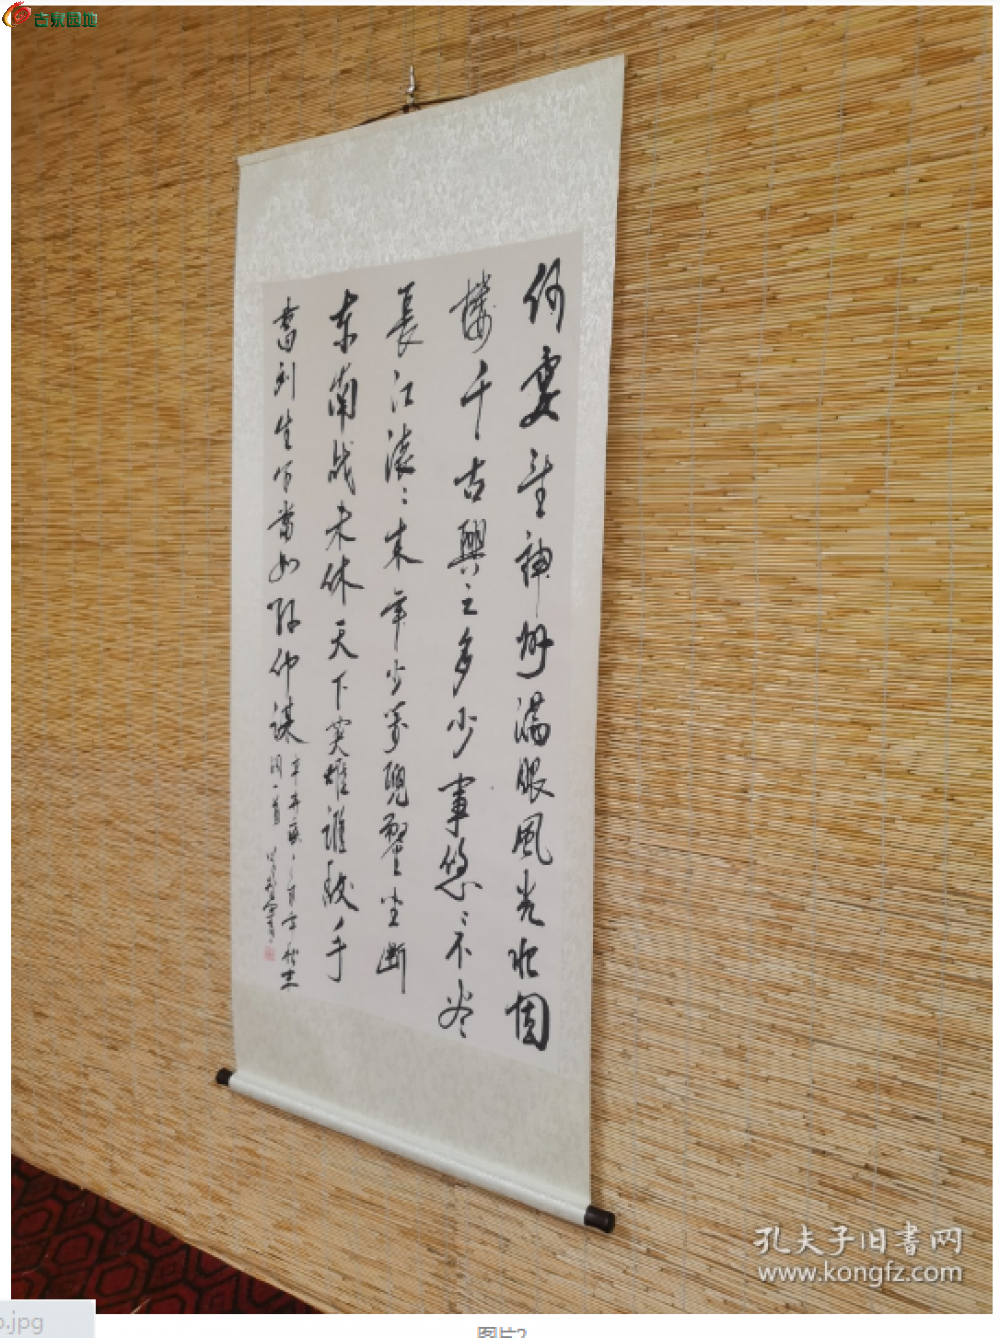 古泉园地
何處望神州滿眼風光北固
樓千古興亡多少事悠〻不尽
長江滚〻来年少萬兜鍪坐斷
东南战未休天下英雄谁敌手
曹刘生子当如孙仲谋
辛弃疾
词一首
孔夫子旧书网
www.kongfz.com
.jpg
图片2